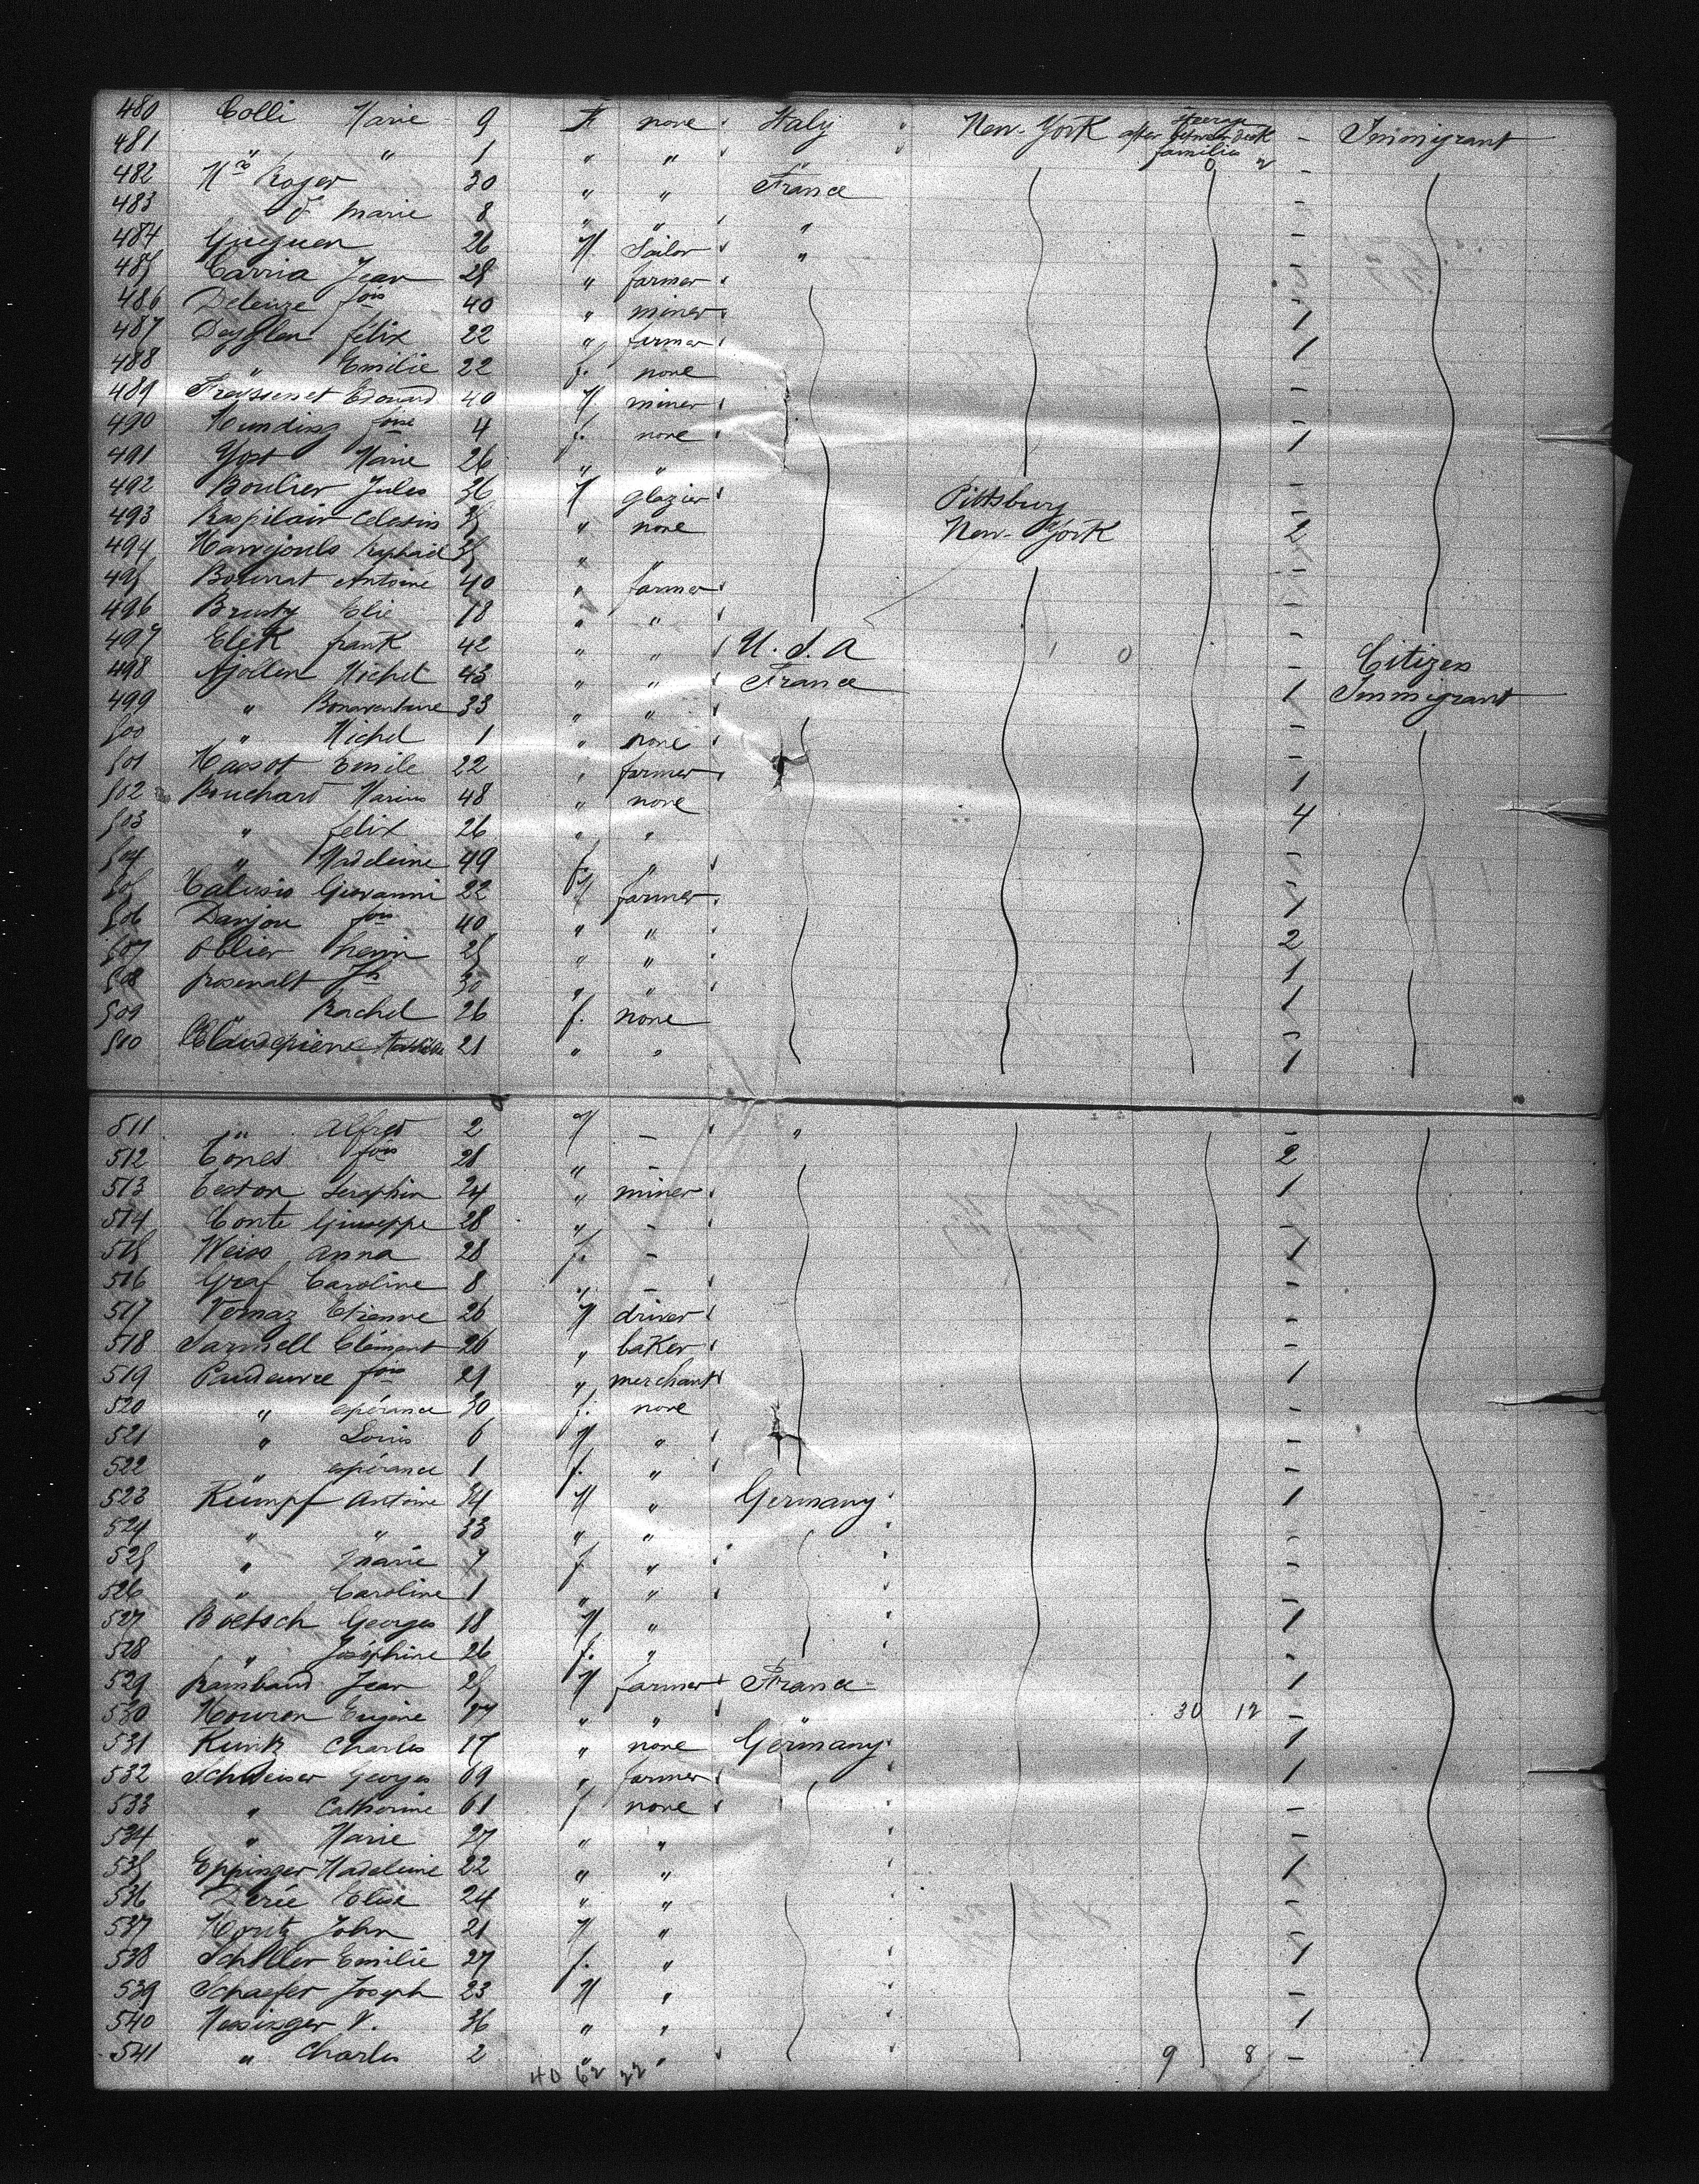 480 Colli Marie 9 F none Italy New-York Steerage after between deck families - Immigrant
481 " " 1 " " " -
482 Mrs Roger 30 " " France 0 2 -
483 " Marie 8 " " " -
484 Gueguen 26 M Sailor " -
485 Carria Jean 28 " farmer -
486 Deleuze fois 40 " miner 1
487 félix 22 " farmer 1
488 " Emilie 22 f. none -
489 Freissenet Edouard 40 M miner -
490 foise 4 f. none 1
491 Yost Marie 26 " " -
492 Boulier Jules 36 M glazier Pittsburg -
493 Celestin 35 " none New-York 2
494 Raphaël 35 " " -
495 Bournat Antoine 40 " farmer -
496 Brusty Elie 18 " " -
497 Elek frank 42 " " U.S.A 0 - Citizen
498 Michel 43 " " France 1 Immigrant
499 " Bonaventure 33 " " -
500 " Michel 1 " none -
501 Massot Emile 22 " farmer 1
502 Bouchard Marius 48 " none 4
503 " félix 26 " " -
504 " Madeleine 49 f. " -
505 Giovanni 22 M farmer 1
506 Danjou fois 40 " " 2
507 Ollier henri 25 " " 1
508 rosenalt Jh 30 " " 1
509 " Rachel 26 f. none -
510 Claudepierre Mathilde 21 " " 1
511 " Alfred 2 M - " -
512 fois 28 " - 2
513 Teston Seraphin 24 " miner 1
514 Conte Giuseppe 28 " - -
515 Weiss anna 28 f. - 1
516 Graf Caroline 8 " - -
517 Vernaz Etienne 26 M driver -
518 Clément 26 " baker -
519 fois 29 " merchant 1
520 " espérance 30 f. none -
521 " Louis 6 M " -
522 " espérance 1 f. " -
523 Kumpf Antoine 34 M " Germany 1
524 " " 33 " " -
525 " Marie 7 f " -
526 " Caroline 1 " " -
527 Boetsch Georges 18 M " 1
528 " Joséphine 26 f. " -
529 Rambaud Jean 25 M farmer France 1
530 Mouron Eugène " " " 30 12 -
531 Kuntz Charles 17 " none Germany 1
532 Schweiser Georges 69 " farmer 1
533 " Catherine 61 f none -
534 " Marie 27 " " -
535 Eppinger Madeleine 22 " " 1
536 Elise 24 " " -
537 John 21 M " -
538 Schiller Emilie 27 f. " 1
539 Schaefer Joseph 23 M " -
540 V. 36 " " 1
541 " Charles 2 " " 9 8 -
40 62 22